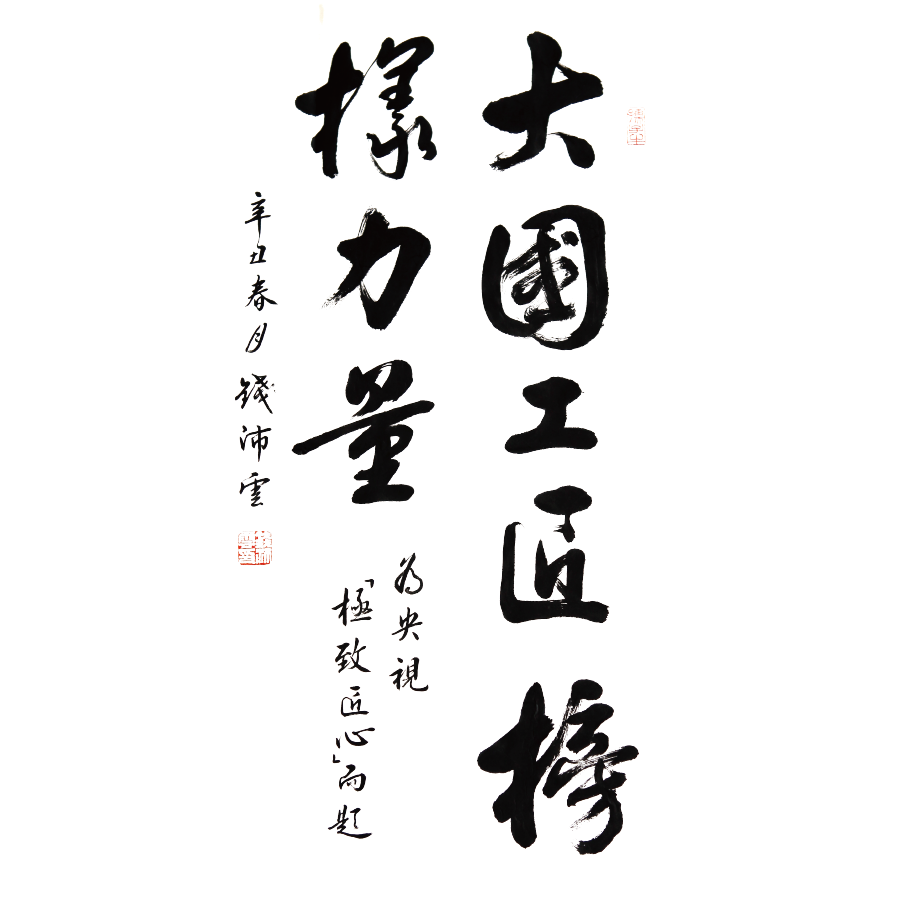 大國工匠榜
樣力量
為央視
「極致匠心」而題
辛丑春月錢沛雲